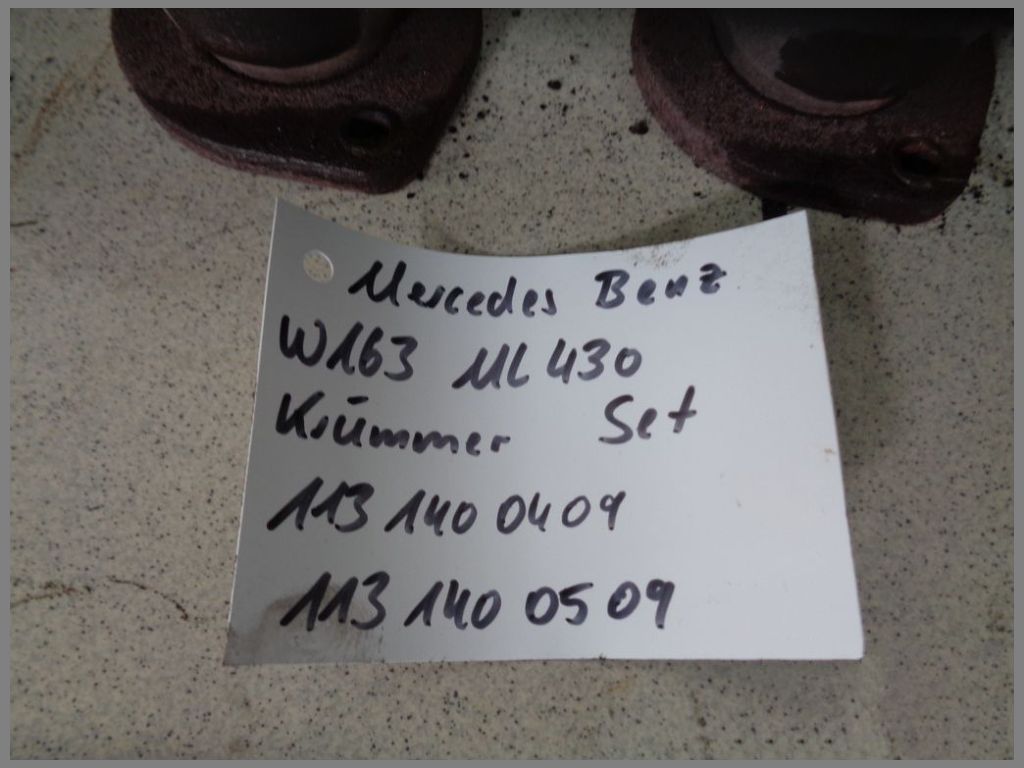 Mercedes Benz
W163 ML 430
Krümmer Set
113 140 0409
113 140 0509